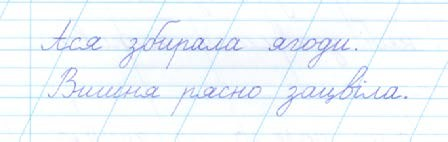 Ася збирала ягоди.
Вишня рясно зацвіла.